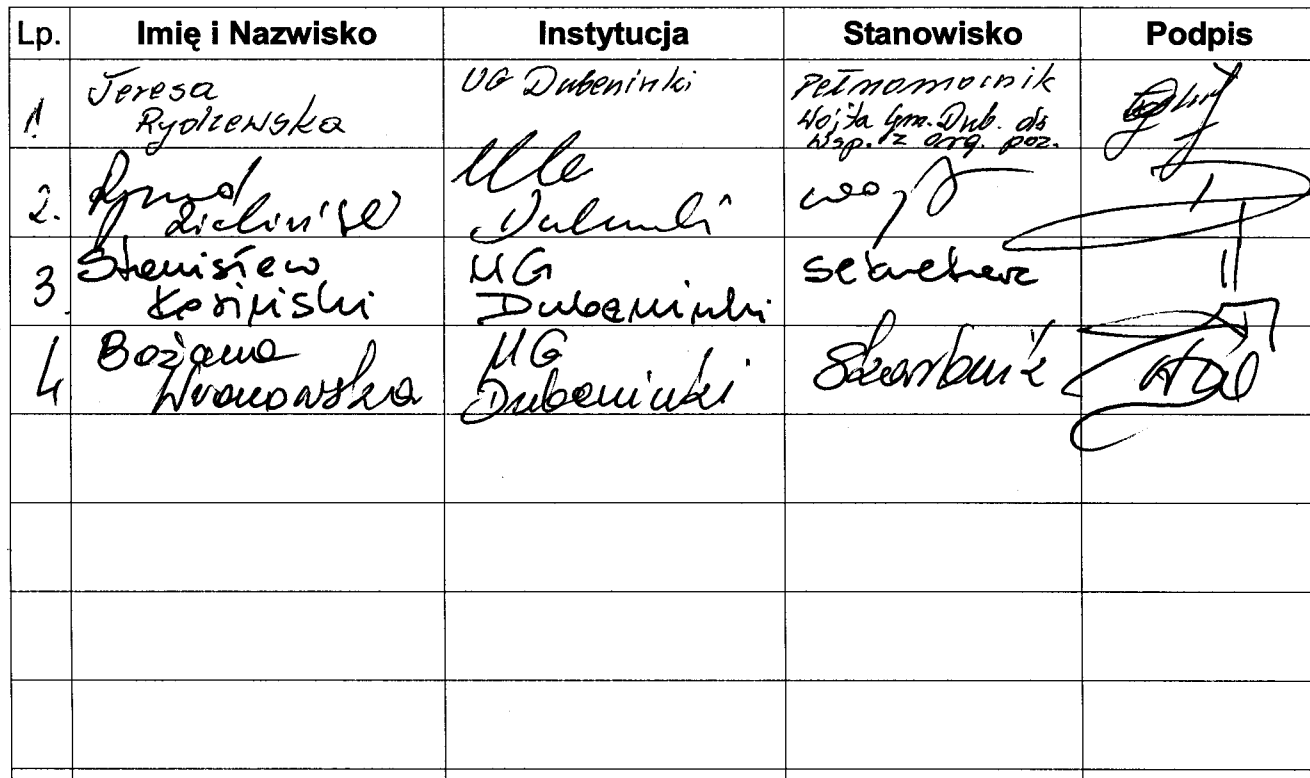 Lp. Imię i Nazwisko Instytucja Stanowisko Podpis
1. Teresa Rydzewska UG Dubeninki Pełnomocnik
Wójta Gm. Dub. ds
wsp. z org. poz.
2. Ryszard Zieliński UG Dubeninki wójt
3 Stanisław UG sekretarz
Dubeninki
4 Bożena UG Skarbnik
Wronowska Dubeninki